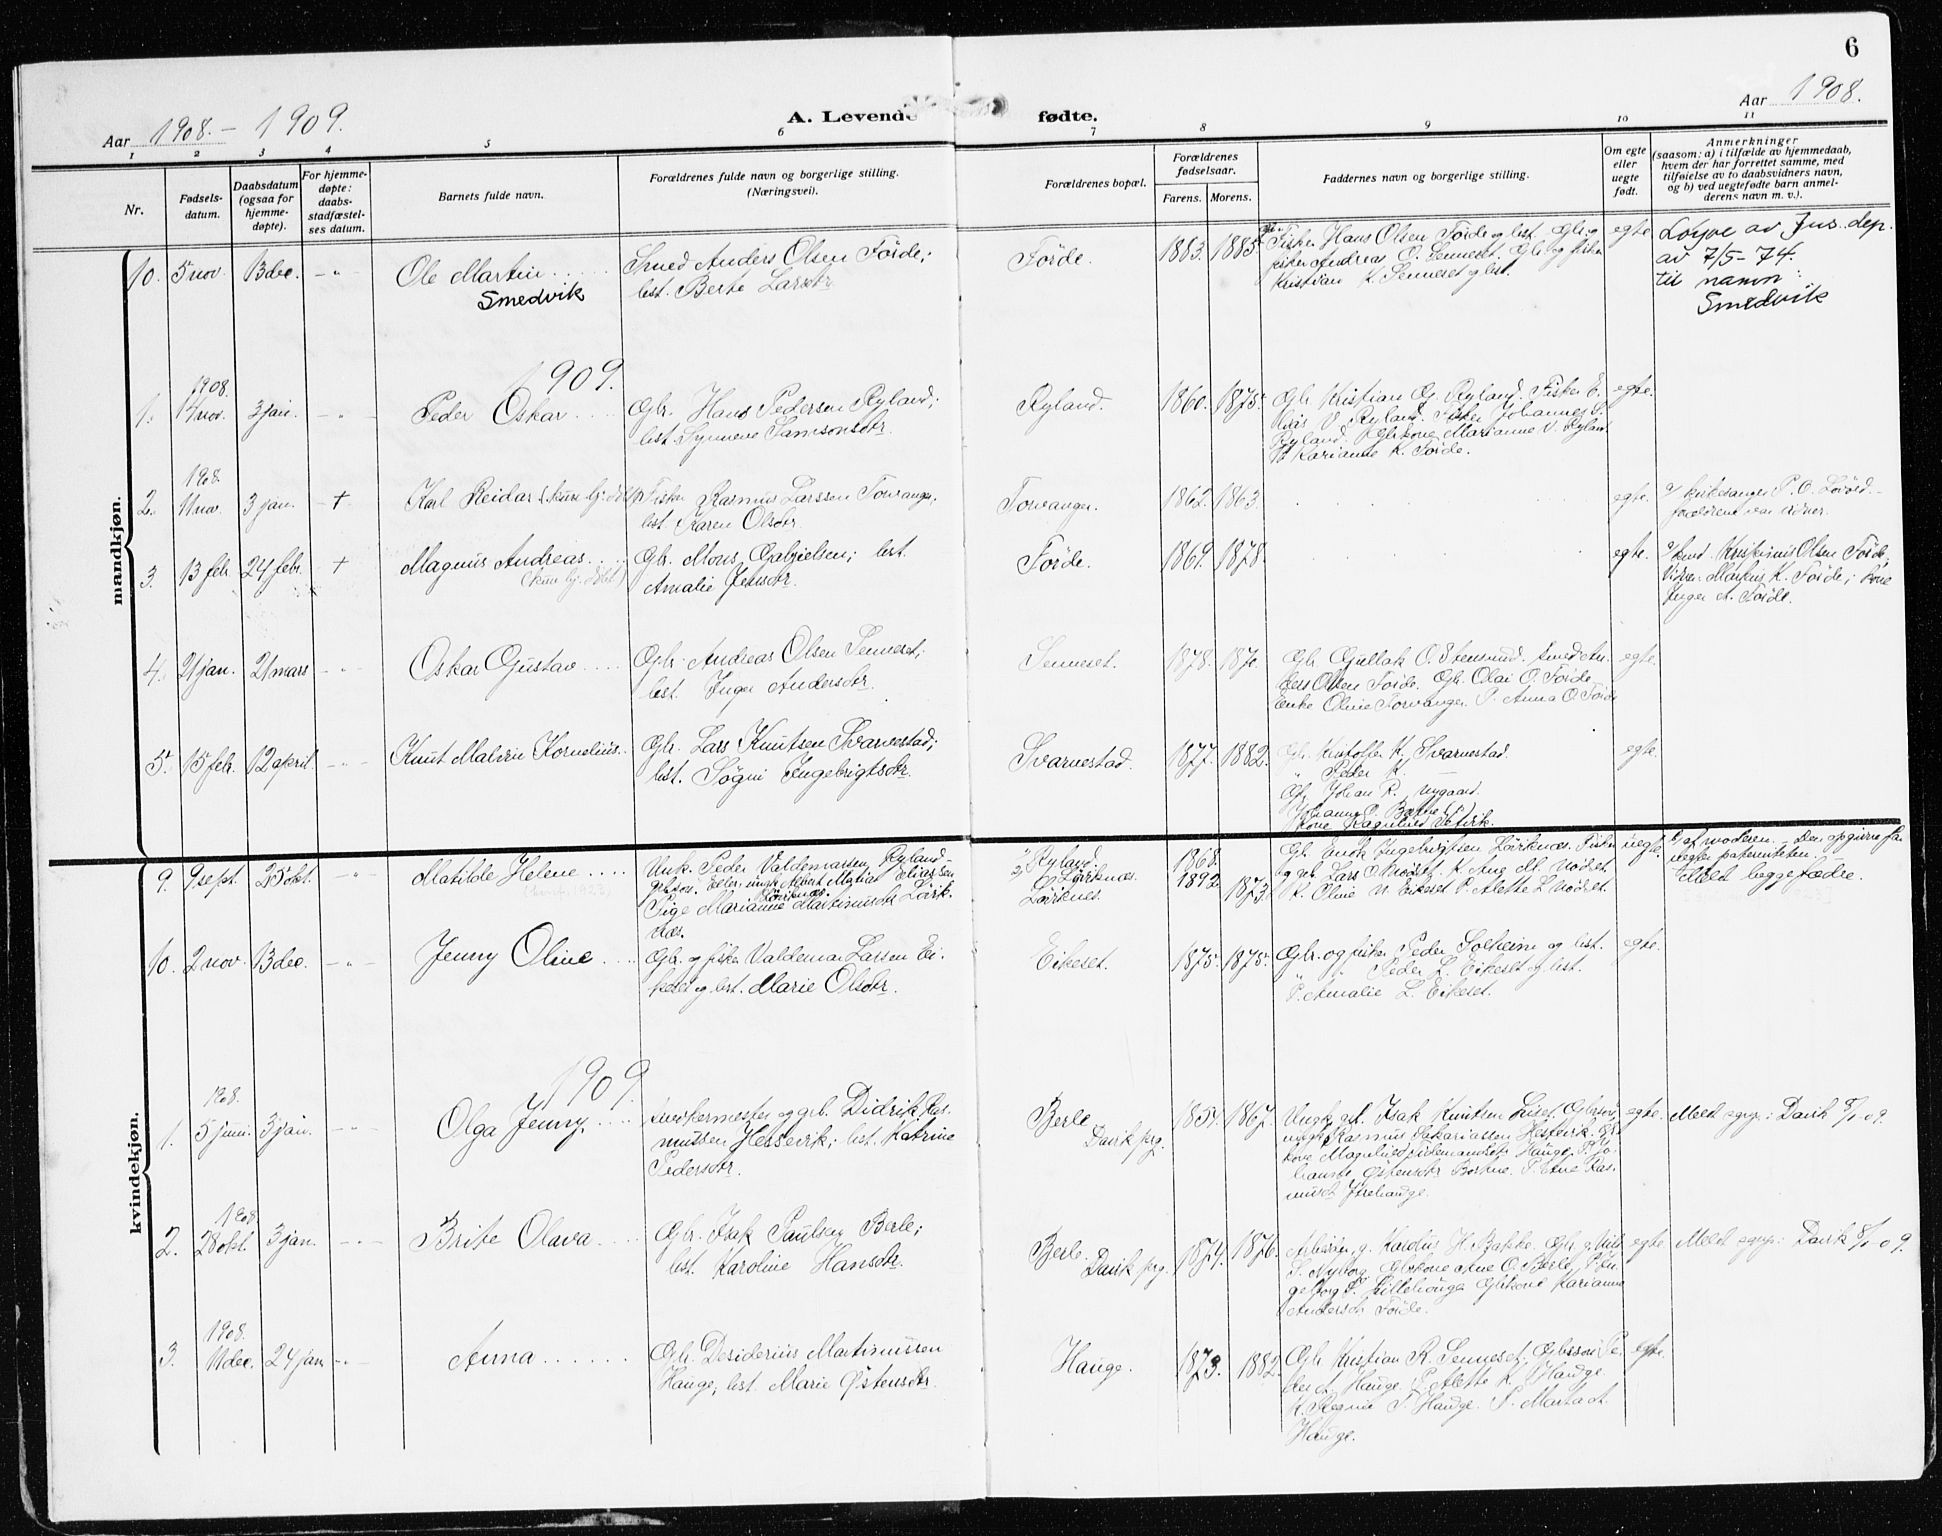 6
Aar 1908. - 1909.
A. Levende fødte.
Aar 1908.
1 2 3 4 5 6 7 8 9 10 11
Nr.
Fødsels-
datum.
Daabsdatum
(ogsaa for
hjemme-
døpte).
For hjemme-
døpte:
daabs-
stadfæstel-
ses datum.
Barnets fulde navn.
Forældrenes fulde navn og borgerlige stilling.
(Næringsvei).
Forældrenes bopæl.
Forældrenes
fødselsaar.
Farens. Morens.
Faddernes navn og borgerlige stilling.
Om egte
eller
uegte
født.
Anmerkninger
(saasom: a) i tilfælde av hjemmedaab,
hvem der har forrettet samme, med
tilføielse av to daabsvidners navn,
og b) ved uegtefødte barn anmel-
derens navn m. v.).
mandkjøn.
10. 5 nov. 13 dec. - " -
Ole Martin
Smedvik
Smed Anders Olsen Førde;
best. Berte Larsdtr.
Førde. 1883. 1885.
Fisker Hans Olsen Førde og best. Gbr. og
fisker Andreas O. Senneset. Gbr. og fisker
Kristian K. Senneset og best.
egte
Løyve av Jus. dep.
av 7/5-74.
til namn:
Smedvik
1909.
1. 1908. 14 nov. 3 jan. - " -
Peder Oskar
Gbr. Hans Pedersen Ryland;
best. Synneve Samsonsdtr.
Ryland. 1860. 1875.
Gbr. Kristian G. Ryland. Fisker E-
lias V. Ryland. Fisker Johannes P.
Ryland. Gbrkone Marianne V. Ryland.
P. Karianne K. Førde.
egte.
2. 1908. 11 nov. 3 jan. - +
Karl Reidar (kun hj. døbt)
Fisker Rasmus Larssen Torvanger;
best. Karen Olsdtr.
Torvanger. 1862. 1863.
egte.
a/ kirkesanger P. O.
forældrene var vidner.
3. 13 febr. 24 febr. +
Magnus Andreas
(kun hj. døbt)
Gbr. Mons Gabrielsen; best.
Amalie Jensdtr.
Førde. 1869. 1878.
egte.
a/ ved Kristinius Olsen Førde;
Vidner: Markus K. Førde; kone
Inger A. Førde.
4. 21 jan. 21 mars - " -
Oskar Gustav
Gbr. Andreas Olsen Senneset;
best. Inger Andersdtr.
Senneset. 1878. 1870.
Gbr. Gullak O. Stensund. Smed An-
ders Olsen Førde. Gbr. Olai O. Førde
Enke Oline Torvanger. P. Anna O. Førde
egte.
5. 15 febr. 12 april. - " -
Knut Malvin Kornelius
Gbr. Lars Knutsen Svarvestad;
best. Søgni Ingebrigtsdtr.
Svarvestad. 1877. 1882.
Gbr. Kristoffer K. Svarvestad.
" Peder K. —
Gbr. Johan R. Nygaard.
Johanne O. Botne
Kone Ragnhild
egte.
kvindekjøn.
9. 9 sept. 25 okt. - " -
Matilde Helene
Unk. Peder Valdemarsen Ryland -
gbrsøn. Eller: ungk. Albert Mattias Eliassen
Lørknæs.
Pige Marianne Martinusdtr. Lørk-
næs.
1) Ryland.
2) Lørknæs.
Lørknes.
1868.
1892. 1873.
Gbr. Endr. Ingebrigtsen Lørknæs. Fisker
og gbr. Lars O. Nødset. K. Ane M. Nødset.
K. Oline N. Eikeset P. Alette L. Nødset.
uegte.
b/ af moderen. Den opgivne far
negter paterniteten.
Meldt begge fædre.
10. 2 nov. 13 dec. - " -
Jenny Oline
Gbr. og fisker Valdemar Larsen Ei-
keset og best. Marie Olsdtr.
Eikeset. 1875. 1875.
Gbr. og fisker Peder Solheim og best.
" Peder L. Eikeset og best.
P. Amalie L. Eikeset.
egte.
1909.
1. 1908. 5 juni. 3 jan. - " -
Olga Jenny.
Snekkermester og gbr. Didrik Ras-
mussen Hessevik; best. Katrine
Pedersdtr.
Berle
Davik prg.
1857. 1867.
Ungk. gbr. Isak Knutsen Liset. Gbrsøn
ungk. Rasmus Sakariassen Hessevik. Gbr.
kone Magnhild Tidemandsdtr. Hauge. P. Jo-
hanne Østensdtr. Botne. P. Ane Ras-
musdt. Ytrehauge.
egte.
Meldt sgpr. i Davik 8/1 09.
2. 1908 28 okt. 3 jan. - " -
Brite Olava
Gbr. Isak Paulsen Berle;
best. Karoline Hansdtr.
Berle
Davik prg.
1874. 1876.
Arbeider g. Karolus H. Bakke. Gbr. g. Nils
S. Nyborg. Gbrkone Ane O. Berle. P. In-
geborg T. Lillehauge Gbrkone Karianna
Andersdtr. Førde.
egte
Meldt sgpr. i Davik 8/1 09.
3. 1908. 11 dec. 24 jan - " -
Anna
Gbr. Desiderius Martinussen
Hauge; best. Marie Østensdtr.
Hauge. 1873. 1882.
Gbr. Kristian R. Senneset, Gbrsøn Pe-
der A. Hauge. P. Alette K. Hauge
K. Ragna T. Hauge. P. Marta A.
Hauge.
egte.